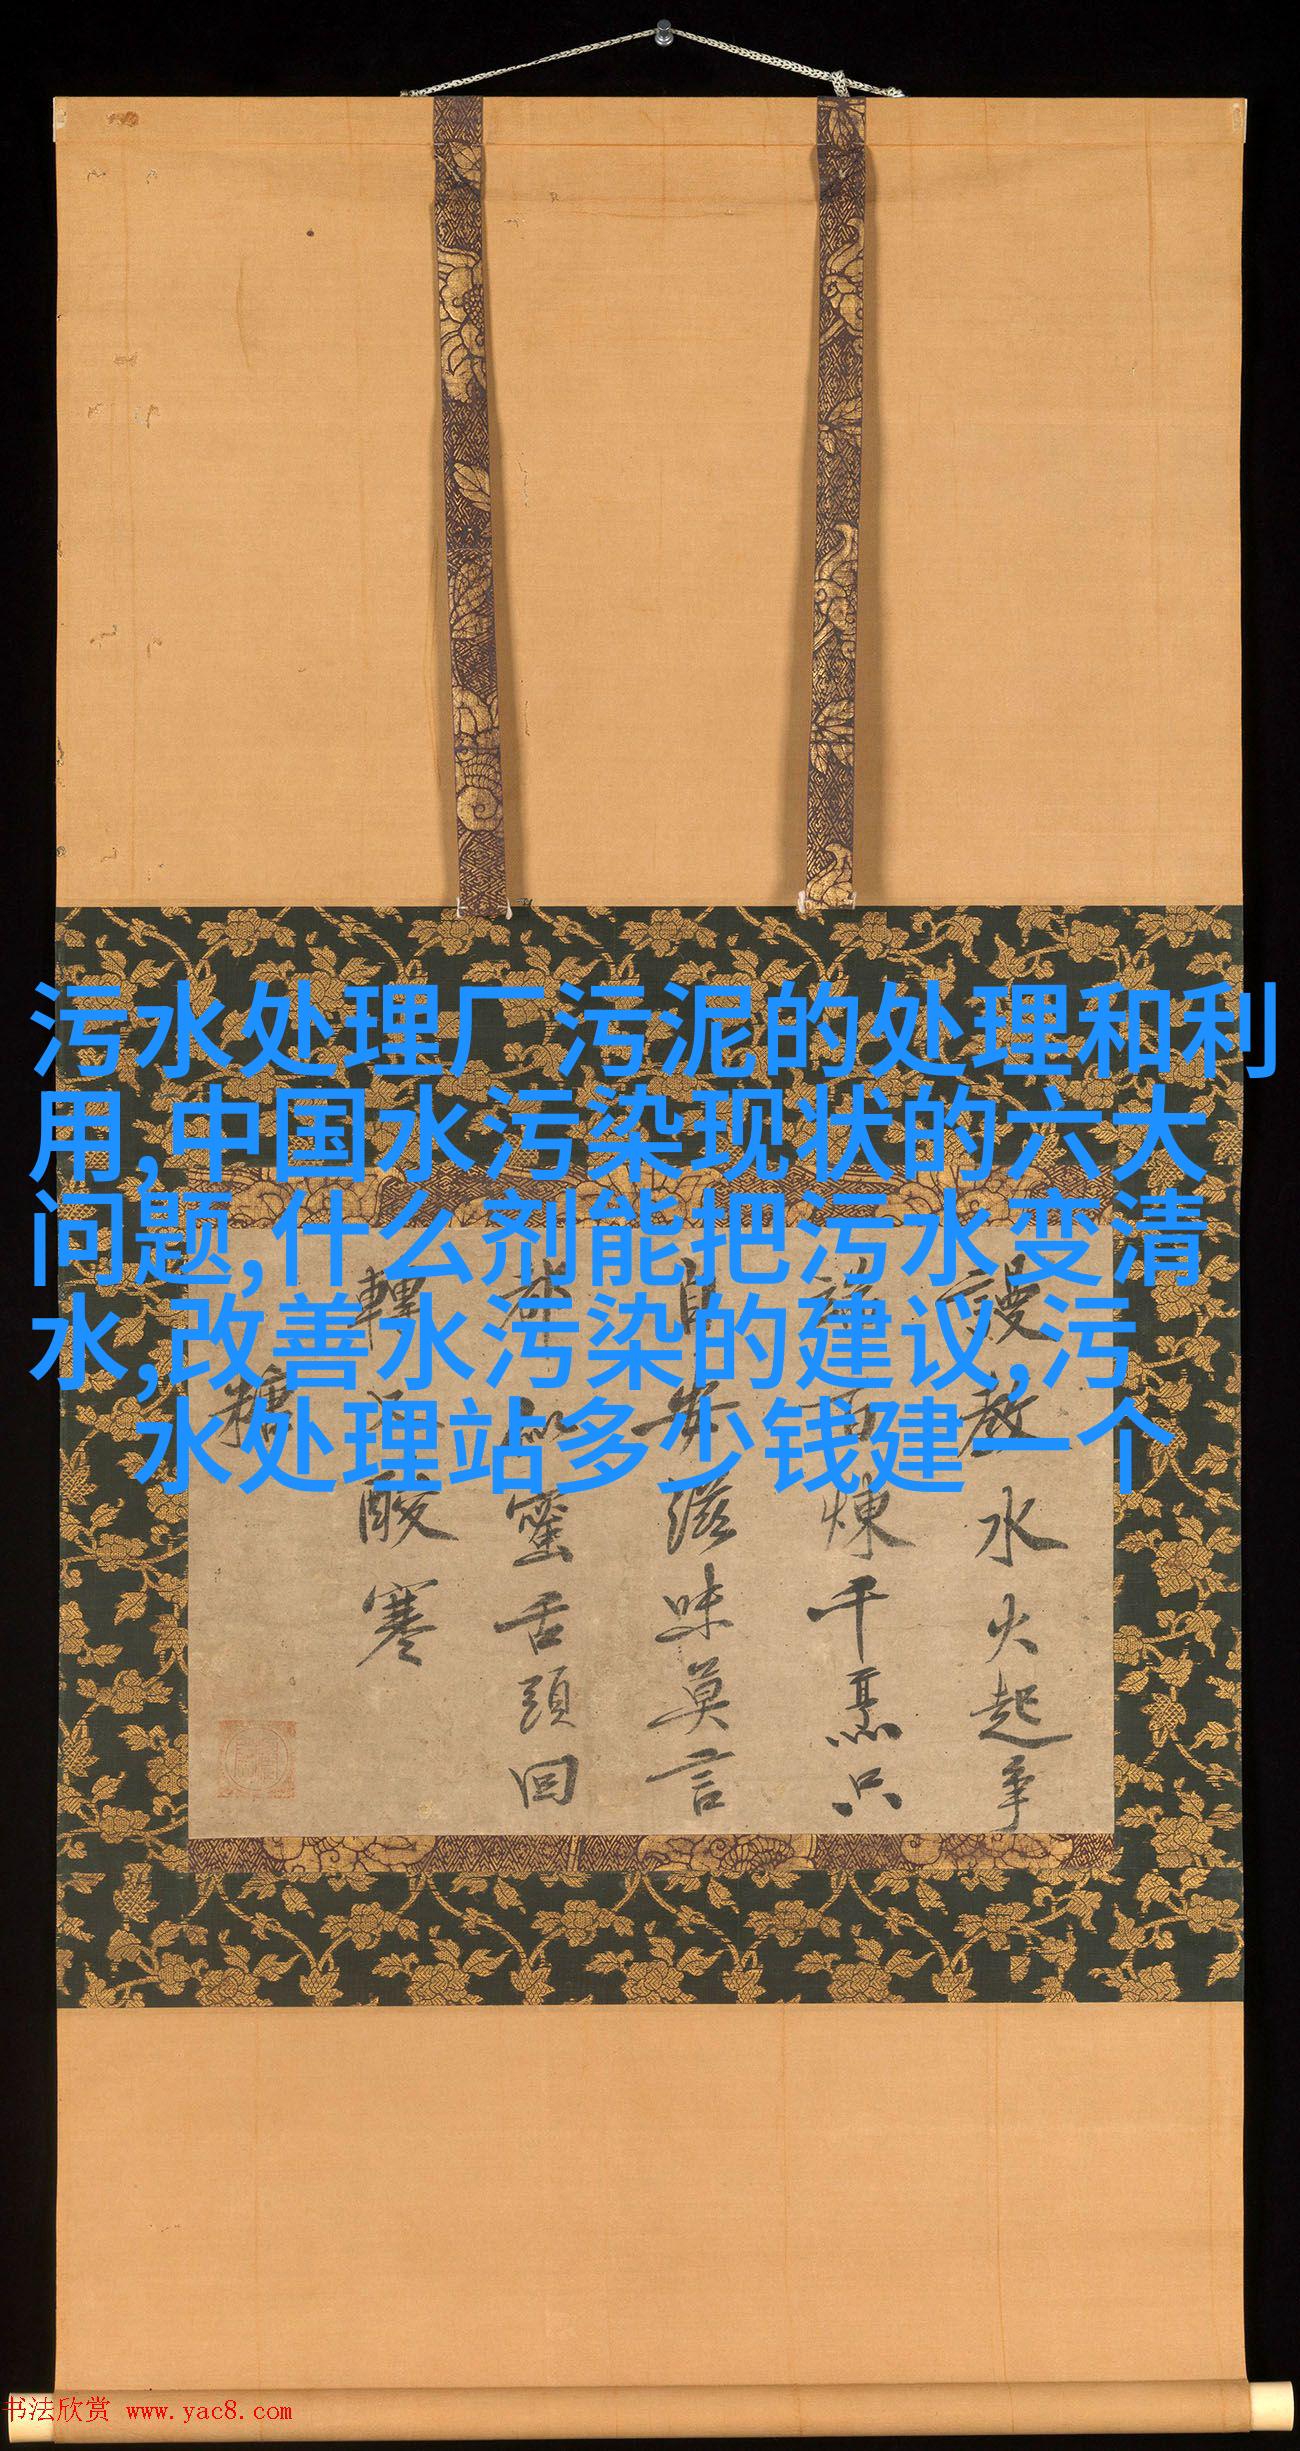 污水处理厂污泥的处理和利
用,中国水污染现状的六大
问题,什么剂能把污水变清
水,改善水污染的建议,污
水处理站多少钱建一个
謾教水火起争
百煉千烹只
自安滋味莫言
却似蜜舌頭回
轉後酸寒
糖
书法欣赏 www.yac8.com